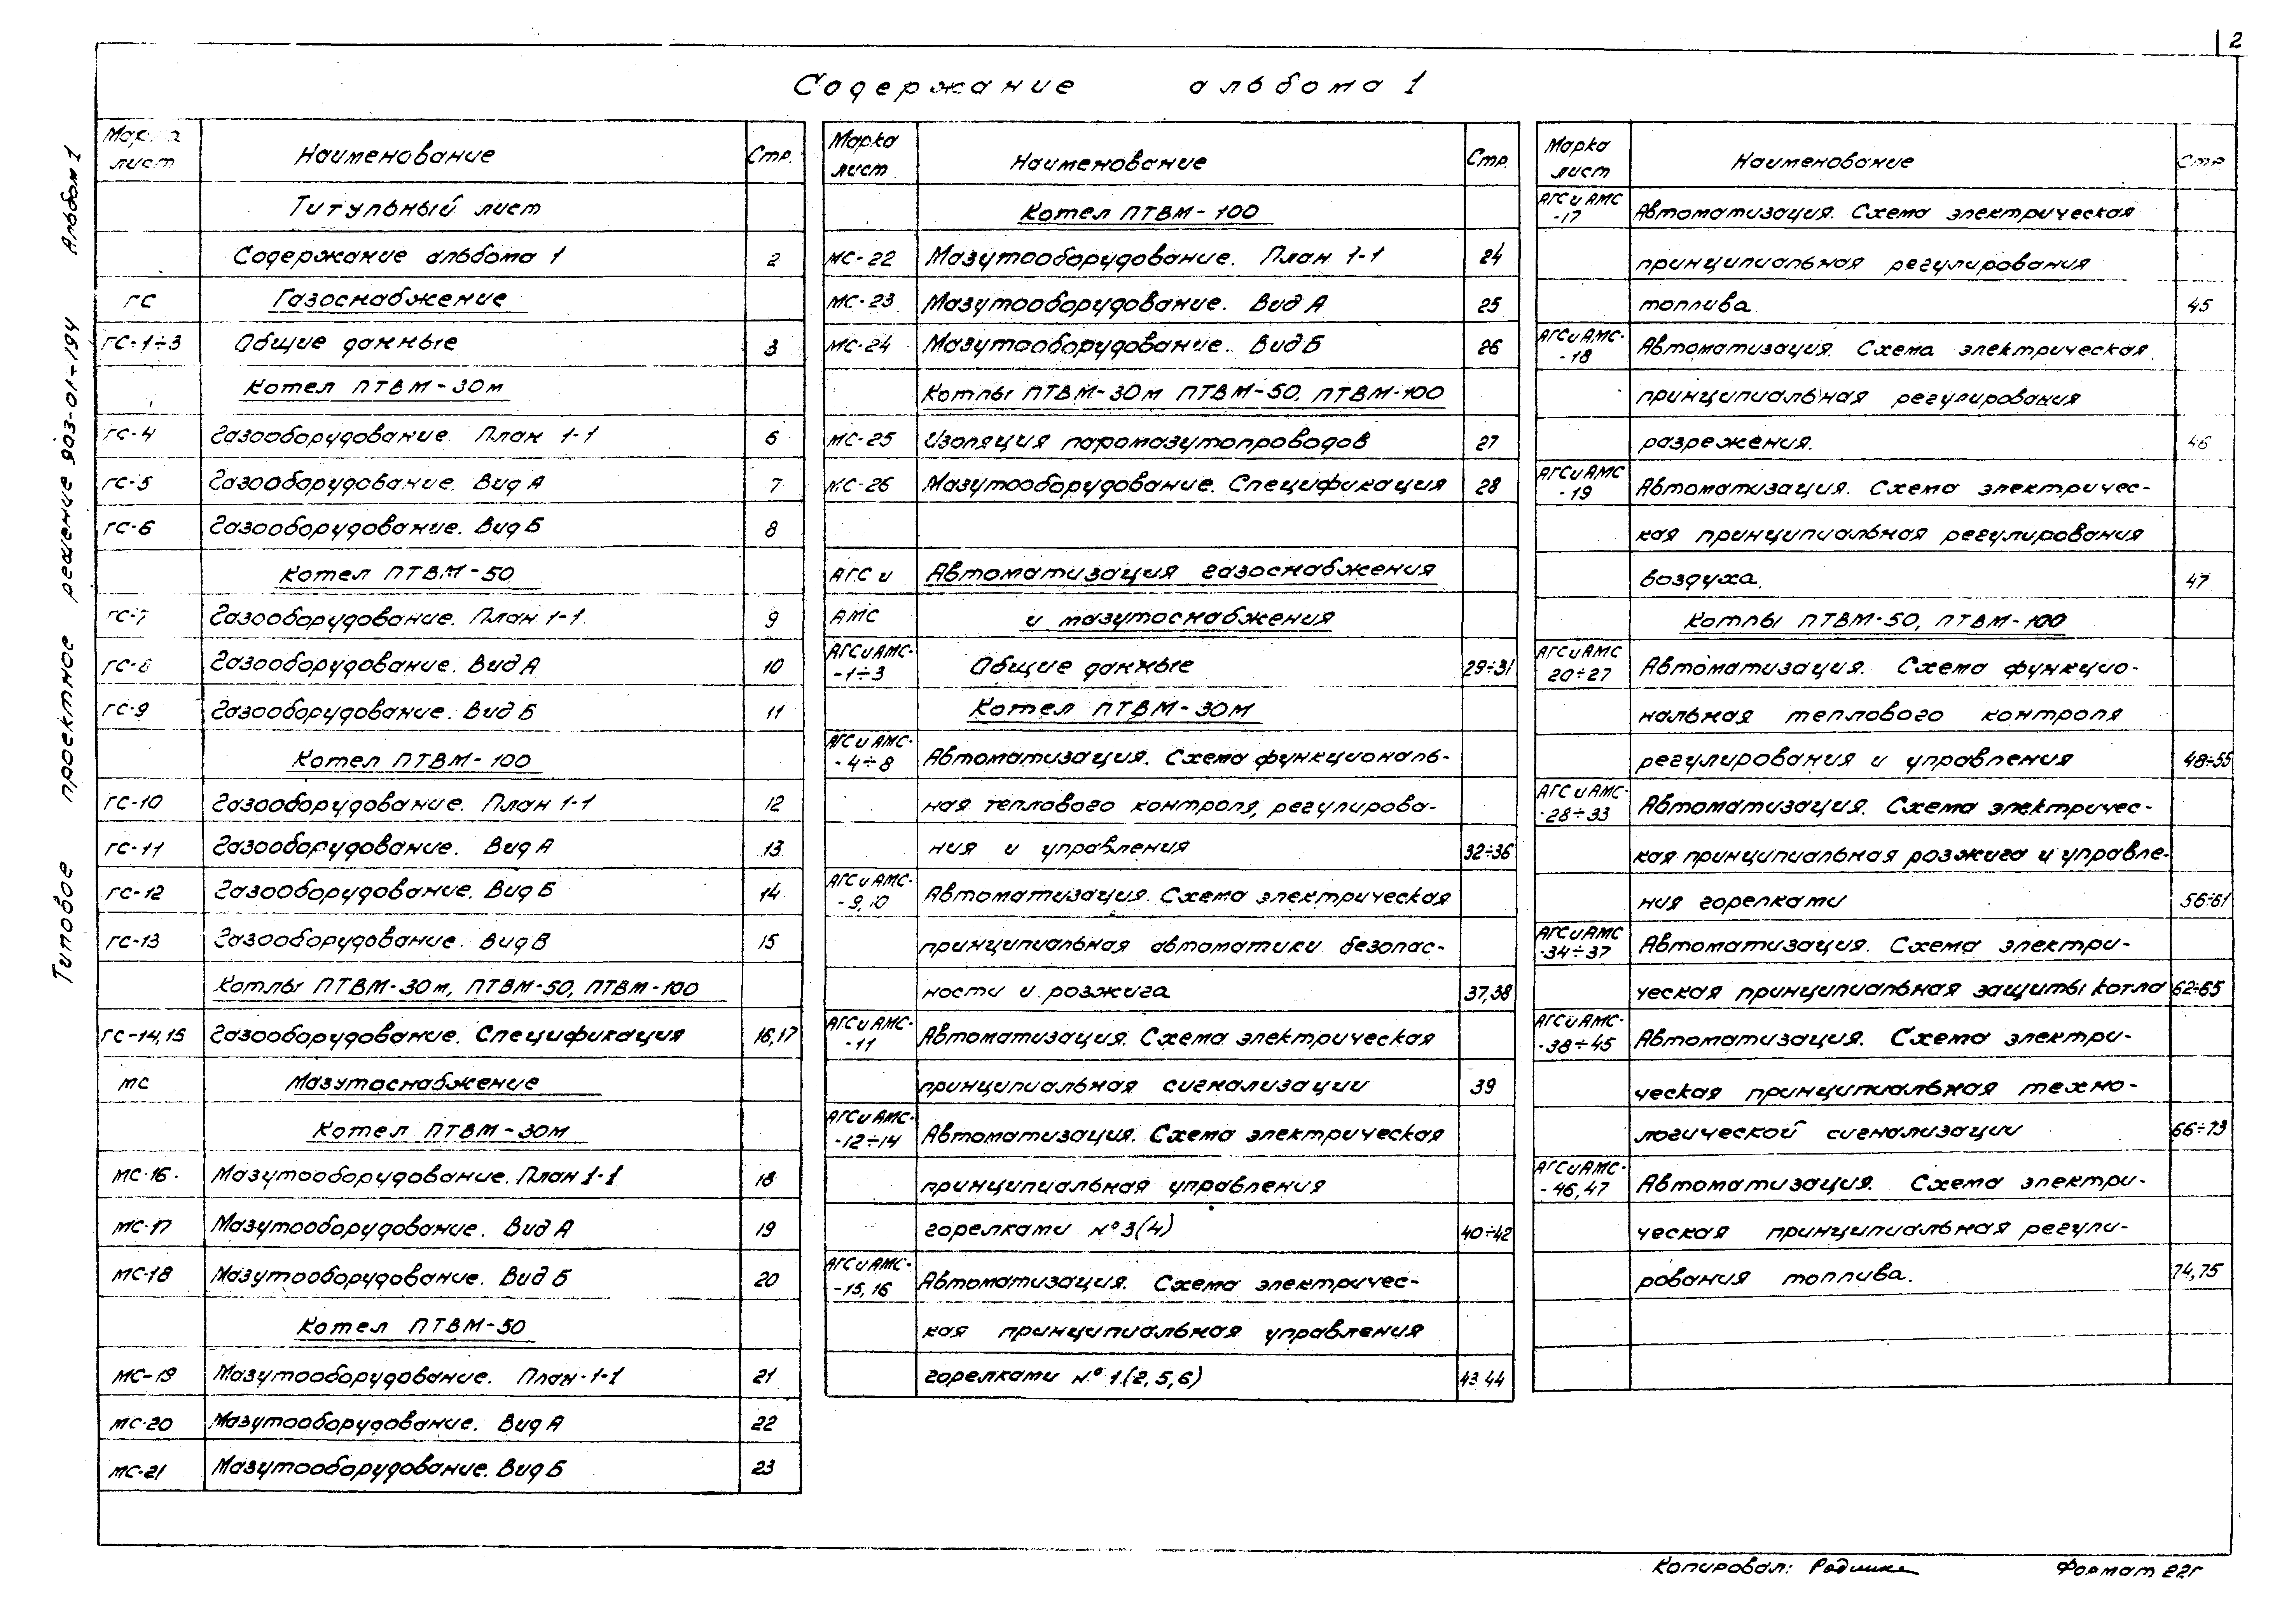 2
Содержание альбома 1
Типовое проектное решение 903-01-194 Альбом 1
Марка лист Наименование Стр.
Титульный лист
Содержание альбома 1 2
ГС Газоснабжение
ГС-1÷3 Общие данные 3
Котел ПТВМ-30м
ГС-4 Газооборудование. План 1-1 6
ГС-5 Газооборудование. Вид А 7
ГС-6 Газооборудование. Вид Б 8
Котел ПТВМ-50
ГС-7 Газооборудование. План 1-1. 9
ГС-8 Газооборудование. Вид А 10
ГС-9 Газооборудование. Вид Б 11
Котел ПТВМ-100
ГС-10 Газооборудование. План 1-1 12
ГС-11 Газооборудование. Вид А 13
ГС-12 Газооборудование. Вид Б 14
ГС-13 Газооборудование. Вид В 15
Котлы ПТВМ-30м, ПТВМ-50, ПТВМ-100
ГС-14,15 Газооборудование. Спецификация 16,17
МС Мазутоснабжение
Котел ПТВМ-30м
МС-16 Мазутооборудование. План 1-1 18
МС-17 Мазутооборудование. Вид А 19
МС-18 Мазутооборудование. Вид Б 20
Котел ПТВМ-50
МС-19 Мазутооборудование. План-1-1 21
МС-20 Мазутооборудование. Вид А 22
МС-21 Мазутооборудование. Вид Б 23
Марка лист Наименование Стр.
Котел ПТВМ-100
МС-22 Мазутооборудование. План 1-1 24
МС-23 Мазутооборудование. Вид А 25
МС-24 Мазутооборудование. Вид Б 26
Котлы ПТВМ-30м ПТВМ-50, ПТВМ-100
МС-25 Изоляция паромазутопроводов 27
МС-26 Мазутооборудование. Спецификация 28
АГС и Автоматизация газоснабжения
АМС и мазутоснабжения
АГС и АМС--1÷3 Общие данные 29÷31
Котел ПТВМ-30М
АГС и АМС--4÷8 Автоматизация. Схема функциональ-
ная теплового контроля, регулирова-
ния и управления 32÷36
АГС и АМС--9,10 Автоматизация. Схема электрическая
принципиальная автоматики безопас-
ности и розжига 37,38
АГС и АМС--11 Автоматизация. Схема электрическая
принципиальная сигнализации 39
АГС и АМС--12÷14 Автоматизация. Схема электрическая
принципиальная управления
горелками №3(4) 40÷42
АГС и АМС--15,16 Автоматизация. Схема электричес-
кая принципиальная управления
горелками №1(2,5,6) 43 44
Марка лист Наименование Стр
АГС и АМС -17 Автоматизация. Схема электрическая
принципиальная регулирования
топлива. 45
АГС и АМС--18 Автоматизация. Схема электрическая
принципиальная регулирования
разрежения. 46
АГС и АМС -19 Автоматизация. Схема электричес-
кая принципиальная регулирования
воздуха. 47
Котлы ПТВМ-50, ПТВМ-100
АГС и АМС 20÷27 Автоматизация. Схема функцио-
нальная теплового контроля
регулирования и управления 48÷55
АГС и АМС--28÷33 Автоматизация. Схема электричес-
кая принципиальная розжига и управле-
ния горелками 56÷61
АГС и АМС -34÷37 Автоматизация. Схема электри-
ческая принципиальная защиты котла 62÷65
АГС и АМС--38÷45 Автоматизация. Схема электри-
ческая принципиальная техно-
логической сигнализации 66÷73
АГС и АМС--46,47 Автоматизация. Схема электри-
ческая принципиальная регули-
рования топлива. 74,75
Копировал: Формат 22г